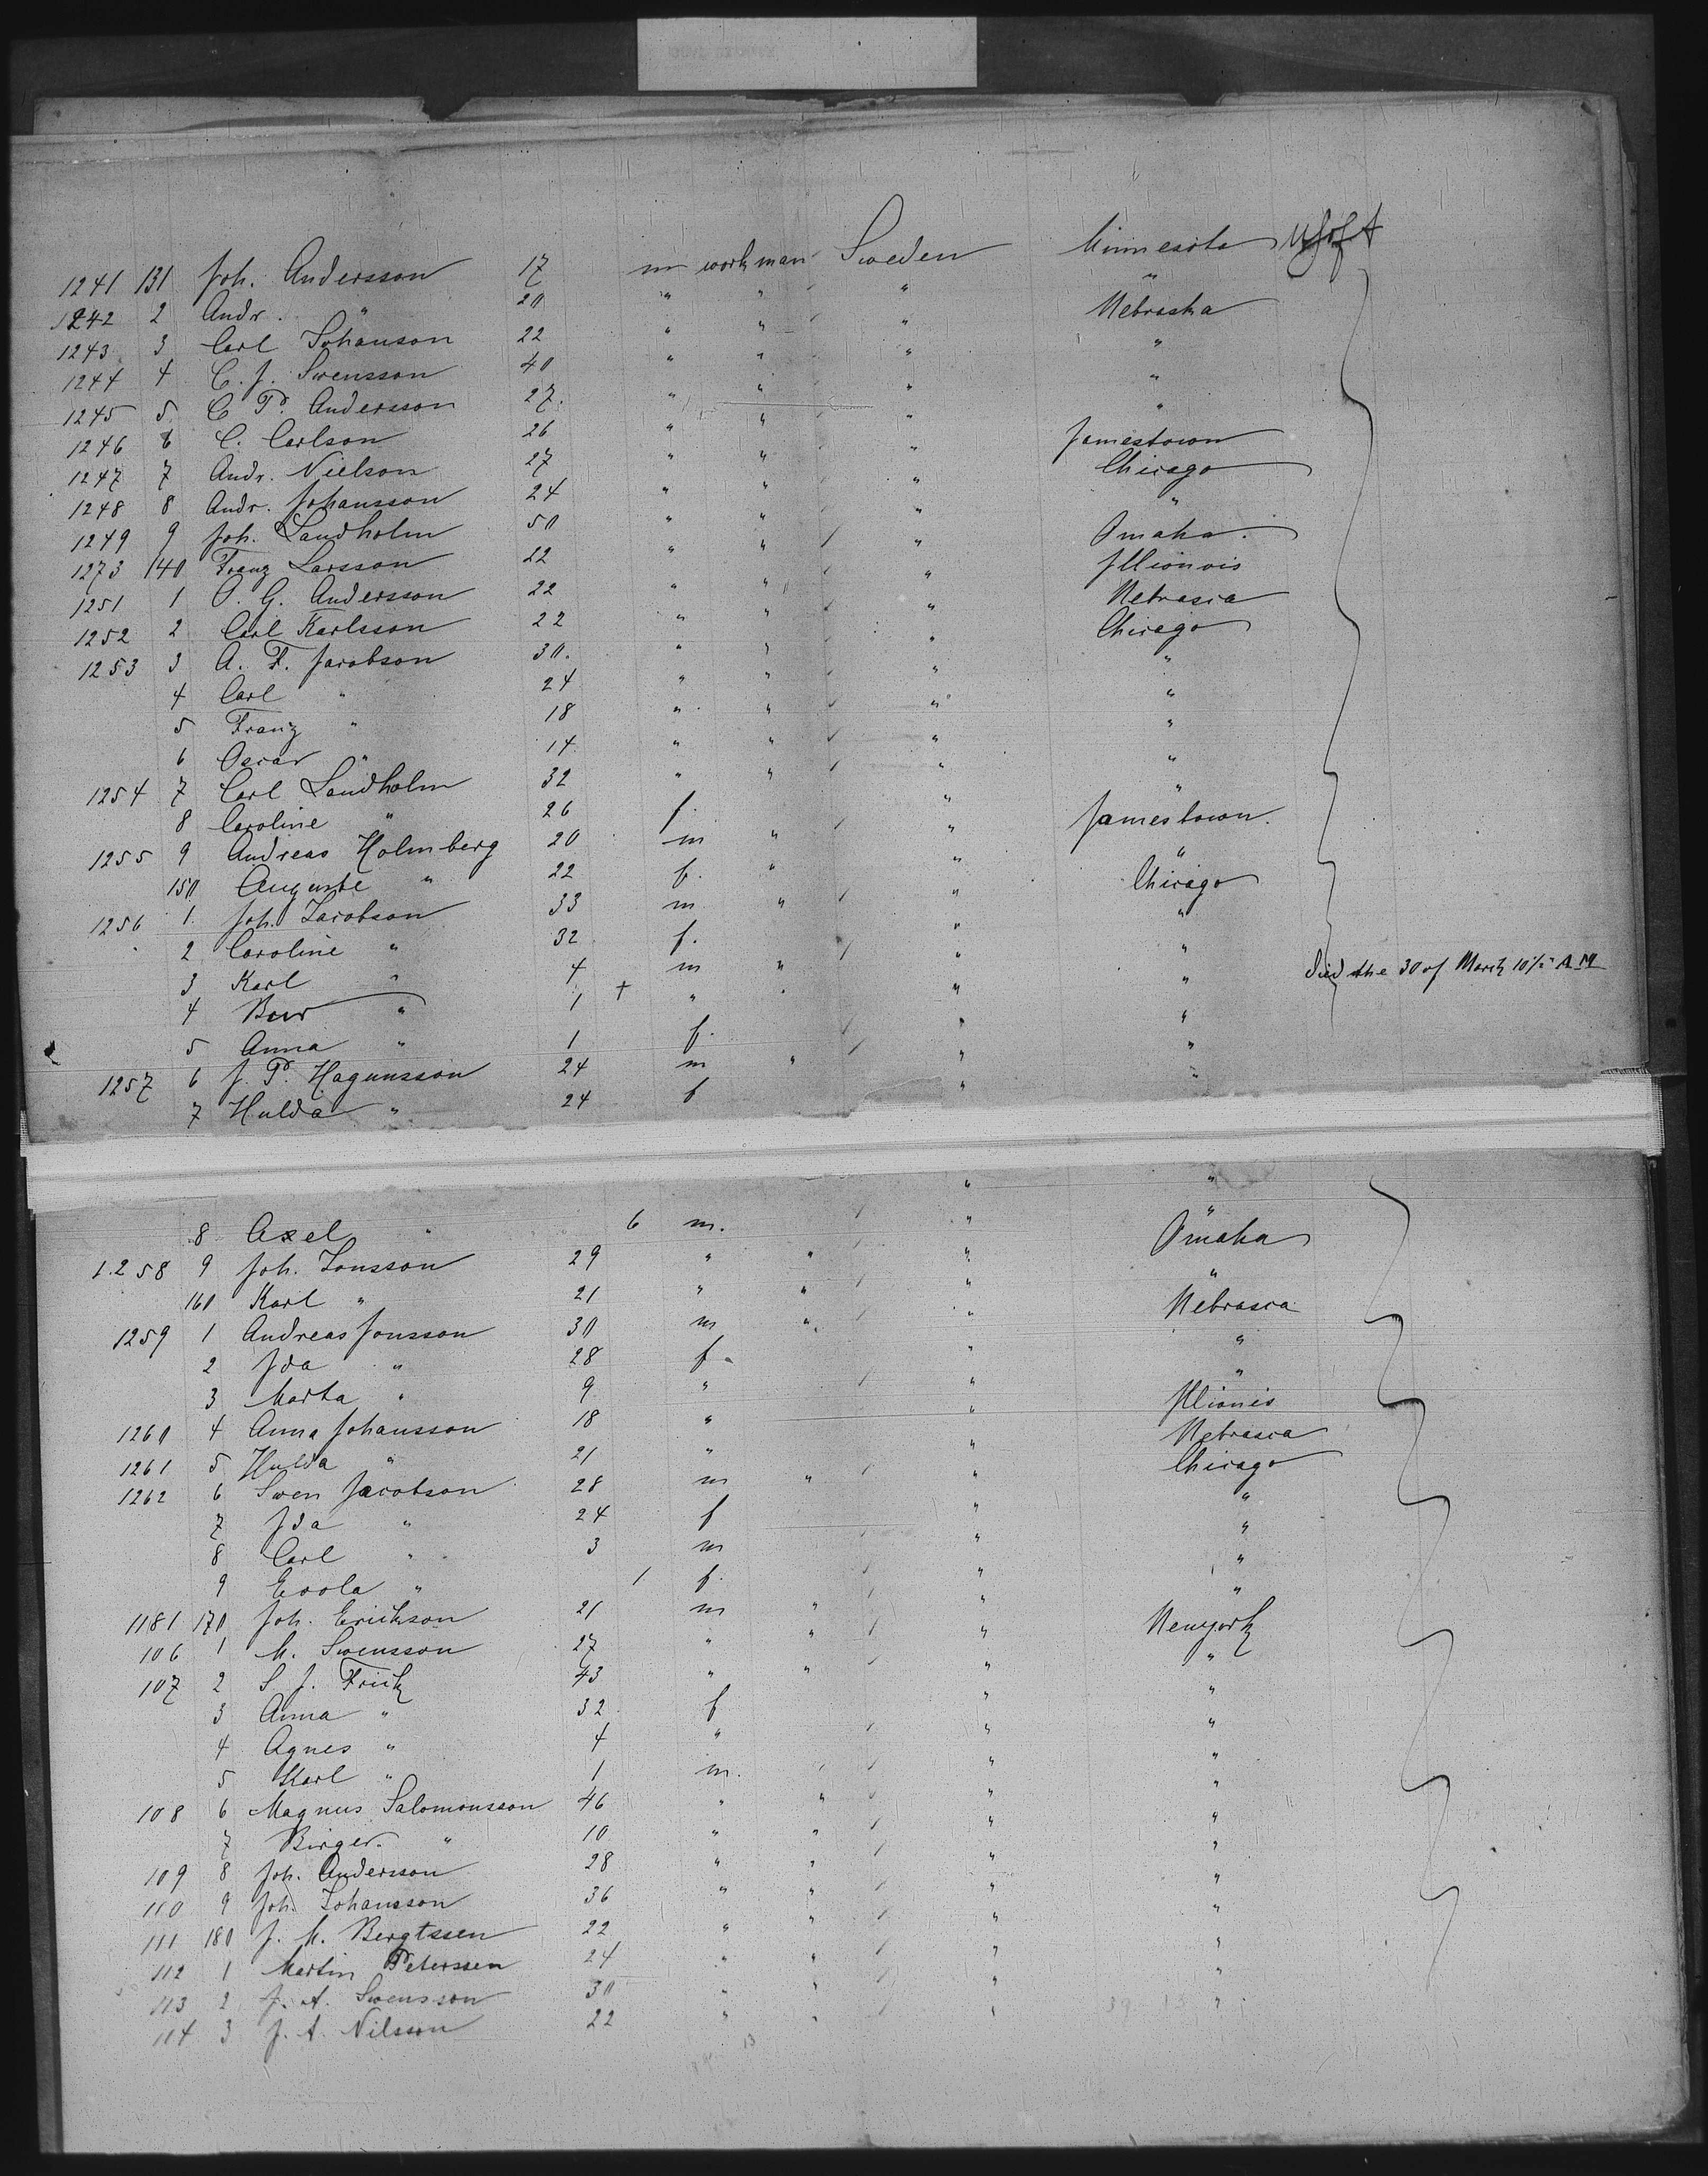 1241 131 Joh. Andersson 17 m workman Sweden Minnesota
1242 2 Andr. " 20 " " " "
1243 3 Carl Johanson 22 " " " Nebraska
1244 4 C. J. Swensson 40 " " " "
1245 5 C. P. Andersson 27. " " " "
1246 6 C. Carlson 26 " " " "
1247 7 Andr. Nielson 27 " " " Jamestown
1248 8 Andr. Johansson 24 " " " Chicago
1249 9 Joh. Landholm 50 " " " "
1273 140 Franz Larsson 22 " " " Omaha.
1251 1 O. G. Andersson 22 " " " Illionois
1252 2 Carl Karlsson 22 " " " Nebrasca
1253 3 A. F. Jacobson 30. " " " Chicago
4 Carl " 24 " " " "
5 Franz " 18 " " " "
6 Oscar " 14 " " " "
1254 7 Carl Landholm 32 " " " "
8 Caroline " 26 f. " "
1255 9 Andreas Holmberg 20 m " " Jamestown.
150 Auguste " 22 f. " " "
1256 1. Joh. Jacobson 33 m " " Chicago
2 Caroline " 32 f. " "
3 Karl " 4 m " " "
4 " 1 + " " " " Died the 30 of March 10½ A.M
5 Anna " 1 f. " "
1257 6 J. P. Hagunsson 24 m " " "
7 Hulda " 24 f " "
8 Axel " 6 m. " "
1258 9 Joh. Jonsson 29 " " " Omaha
160 Karl " 21 " " " "
1259 1 Andreas Jonsson 30 m " " Nebrasca
2 Ida " 28 f. " "
3 Marta " 9 " " "
1260 4 Anna Johansson 18 " " Illionis
1261 5 Hulda " 21 " " Nebrasca
1262 6 Swen Jacobson 28 m " " Chicago
7 Ida " 24 f " "
8 Carl " 3 m " "
9 " 1 f. " "
1181 170 Joh. Erickson 21 m " " "
106 1 M. Swensson 27 " " " Newyork
107 2 S. J. Frick 43 " " " "
3 Anna " 32 f " "
4 Agnes " 4 " " "
5 Karl " 1 m. " "
108 6 Magnus Salomonsson 46 " " " "
7 Birger. " 10 " " " "
109 8 Joh. Andersson 28 " " " "
110 9 Joh. Johansson 36 " " " "
111 180 J. M. Bergtssen 22 " " " "
112 1 Martin Peterssen 24 " " " "
113 2 J. A. Swensson 30 " " " "
114 3 J. A. Nilsson 22 " " " "